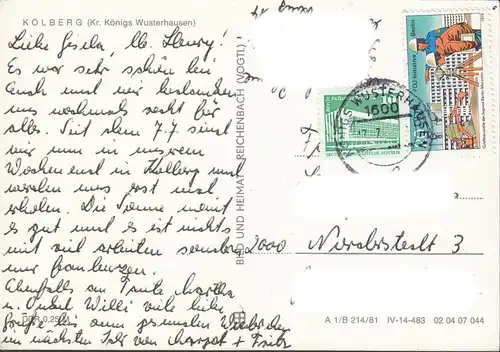 KOLBERG (Kr. Königs Wusterhausen)
Liebe Gisela, lb. Henry!
Es war sehr schön bei
Euch und wir bedanken
uns nochmals recht für
alles. Seit dem 7.7 sind
wir nun in unserem
Wochenend in Kolberg und
werden uns erst mal
erholen. Die Sonne meint
es gut und es ist nichts
mit viel arbeiten sondern
nur faulenzen.
Ebenfalls an Tante Martha
u. Onkel Willi viele liebe
Grüße bis zum gesunden Wiedersehen
im nächsten Jahr von Margot + Fritz
DDR 0,25 M
BILD UND HEIMAT REICHENBACH (VOGTL)
FDJ-Initiative Berlin
10
KÖNIGS WUSTERHAUSEN
1600
3000
3
A 1/B 214/81 IV-14-483 02 04 07 044